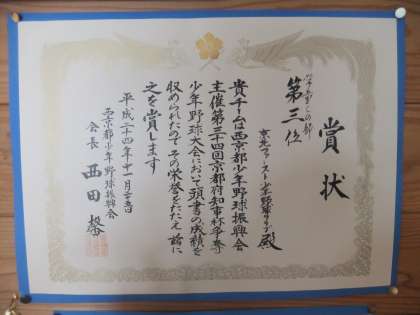 賞状
学童の部
第三位
京北ファースト少年野球クラブ殿
貴チームは西京都少年野球振興会
主催第三十四回京都府知事杯争奪
少年野球大会において頭書の成績を
収められたのでその栄誉をたたえ前に
之を賞します
平成二十四年十一月三日
西京都少年野球振興会
会長 西田